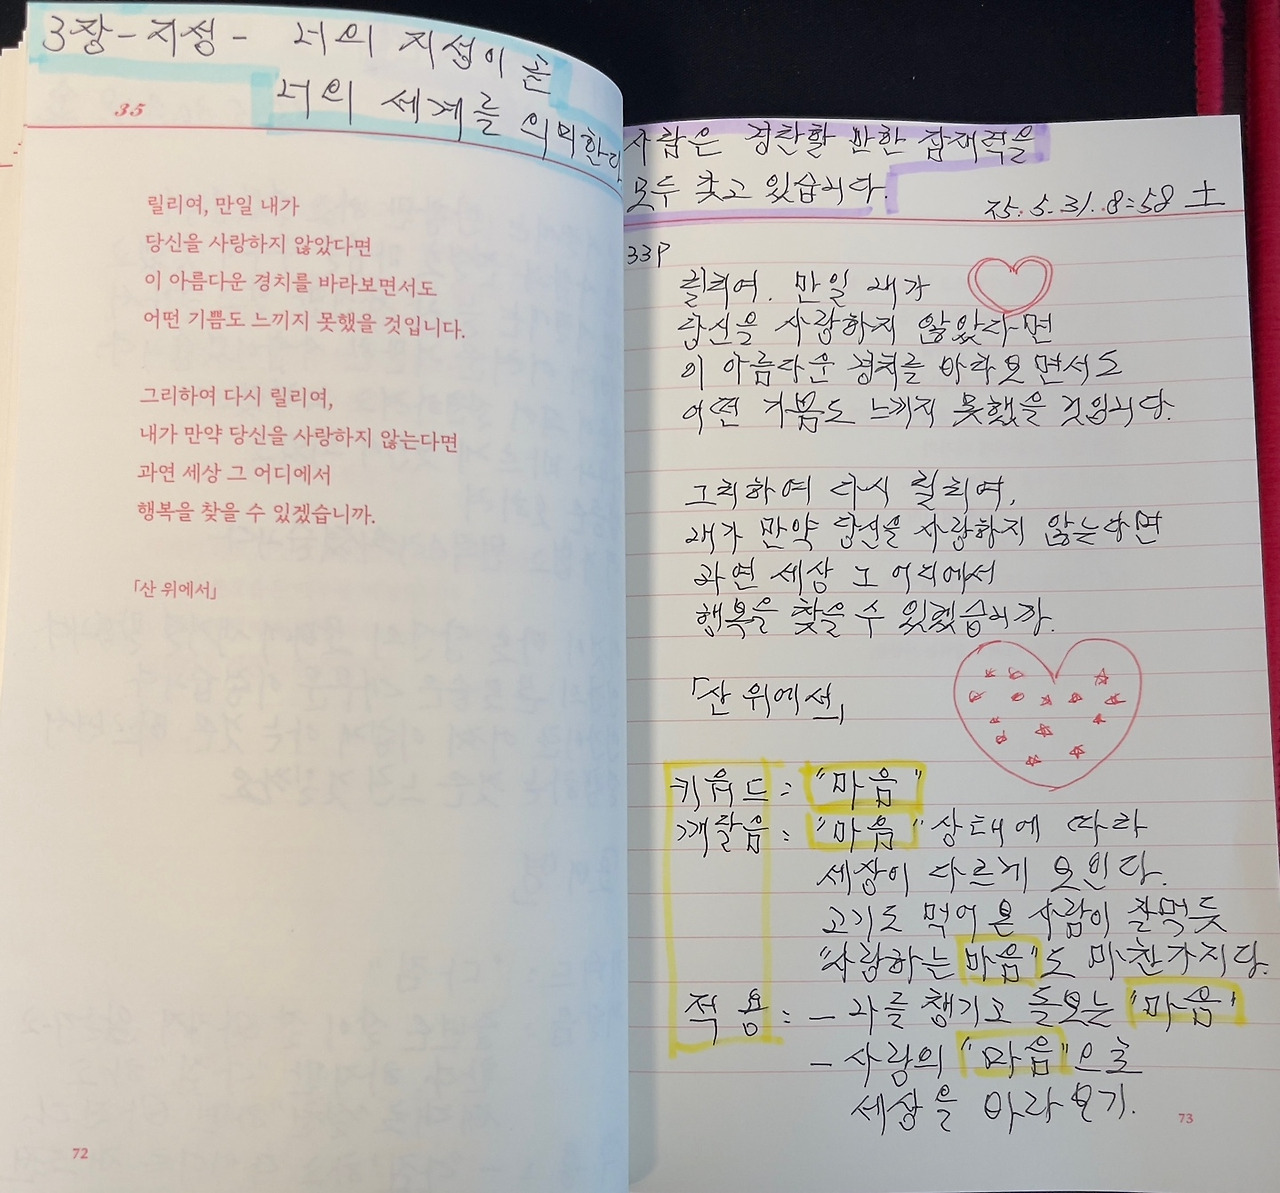 3장 - 지성 - 너의 지성이 곧
너의 세계를 의미한다
35
릴리여, 만일 내가
당신을 사랑하지 않았다면
이 아름다운 경치를 바라보면서도
어떤 기쁨도 느끼지 못했을 것입니다.
그리하여 다시 릴리여,
내가 만약 당신을 사랑하지 않는다면
과연 세상 그 어디에서
행복을 찾을 수 있겠습니까.
「산 위에서」
72
사람은 경탄할 만한 잠재력을
모두 갖고 있습니다.
25. 5. 31. 8:58 土
33P
릴리여. 만일 내가
당신을 사랑하지 않았다면
이 아름다운 경치를 바라보면서도
어떤 기쁨도 느끼지 못했을 것입니다.
그리하여 다시 릴리여,
내가 만약 당신을 사랑하지 않는다면
과연 세상 그 어디에서
행복을 찾을 수 있겠습니까.
「산 위에서」
키워드 : "마음"
깨달음 : "마음" 상태에 따라
세상이 다르게 보인다.
고기도 먹어 본 사람이 잘먹듯
"사랑하는 마음"도 마찬가지다.
적용 : - 나를 챙기고 돌보는 "마음"
- 사랑의 "마음"으로
세상을 바라보기.
73